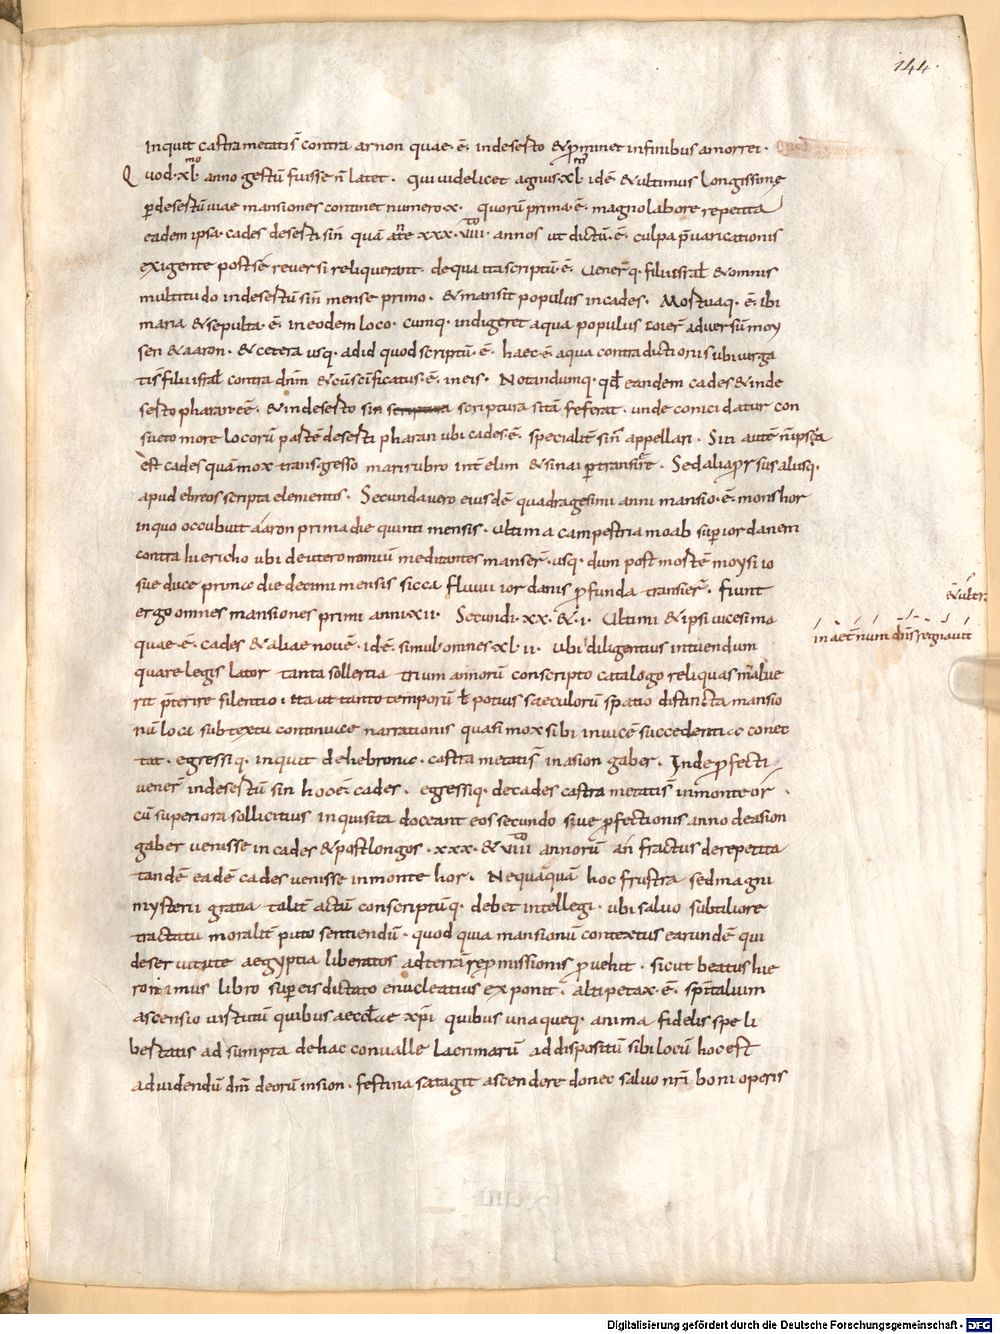 144.
Inquit castra metatis̄ contra arnon quae · ē · indeserto & p̄minet infinibus amorrei ·
Quod · xlᵐᵒ anno gestū fuisse n̄ latet · qui videlicet agnus · xlᵐ idē & ultimus longissime
p̱desertū uiae mansiones continet numero · x · quorū prima · ē · magno labore repetita
eadem ipsa · cades deserti sin quā xxx · viiii · annos ut dictū · ē · culpa p̄uaricationis
exigente post sē reuersi reliquerant · de qua ita scriptū · ē · Uener̄q · filii isrl̄ & omnis
multitudo in desertū sin mense primo · & mansit populus incades · Mortuaq · ē · ibi
maria & sepulta · ē · in eodem loco · cumq · indigeret aqua populus coier̄ aduersū moy
sen & aaron · & cetera usq · ad id quod scriptū · ē · haec · ē · aqua contradictionis ubi iurga
tis̄ filii isrl̄ contra dnm̄ & sc̄ificatus · ē · in eis · Notandumq · qd̄ eandem cades & inde
serto pharan · eē · & indeserto sin scriptura scriptura sitā referat · unde conici datur con
sueto more locorū partē deserti pharan ubi cades · ē · specialit̄ sin appellari ·
est cades quā mox transgresso mari rubro int̄ elim & sinai p̱transire · Sed alia
apud ebreos scripta elementis · Secunda uero eiusdē quadragesimi anni mansio · ē · mons hor
inquo occubuit aaron prima die quinti mensis · ultima campestria moab sup̱ iordanem
contra hiericho ubi deuteronomiū meditantes manser̄ · usq · dum post mortē moysi io
sue duce primo die decimi mensis sicca fluuii iordanis p̱funda transier̄ · Fiunt
ergo omnes mansiones primi anni · xii · Secundi · xx · & · i · Ultimi & ipsi uicesima
quae · ē · cades & aliae nouē · idē · simul omnes · xl ii · Ubi diligentius intuendum
quare legis lator tanta sollertia trium annorū conscripto catalogo reliquas maluerit
rit p̄terire silentio · ita ut tanto temporū ł potius saeculorū spatio distincta mansio
nū loca sub textu continuae narrationis quasi mox sibi inuicē succedentia conec
tat · egressiq · inquit de hebrona · castra metatis̄ in asion gaber · Inde p̱fecti
uener̄ indesertū sin hoc · ē · cades · egressiq · decades castra metatis̄ inmonte or ·
cū superiora sollicitius inquisita doceant eos secundo suae p̱fectionis anno de asion
gaber uenisse in cades & post longos · xxx · & viii · annorū anfractus de repetita
tandē eadē cades uenisse inmonte hor · Nequaquā hoc frustra sed magni
mysterii gratia talit̄ actū conscriptūq · debet intellegi · ubi saluo subtiliore
tractatu moralit̄ puto sentiendū · quod quia mansionū contextus earundē qui
de seruitute aegyptia liberatos ad terrā rep̱missionis p̱uehit · sicut beatus hie
ronimus libro sup̱ eis dictato enucleatius exponit · alti petax · ē · sp̄italium
ascensio uirtutū quibus aecclae xp̄i quibus una quęq · anima fidelis spe li
bertatis adsumpta de hac conualle lacrimarū ad dispositū sibi locū hoc est
ad uidendū dm̄ deorū insion · festina satagit ascendere donec saluo nr̄i boni operis
& ultra
in aet̄num dn̄s regnauit